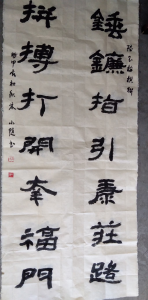 錘鐮指引康莊路
拼搏打開幸福門